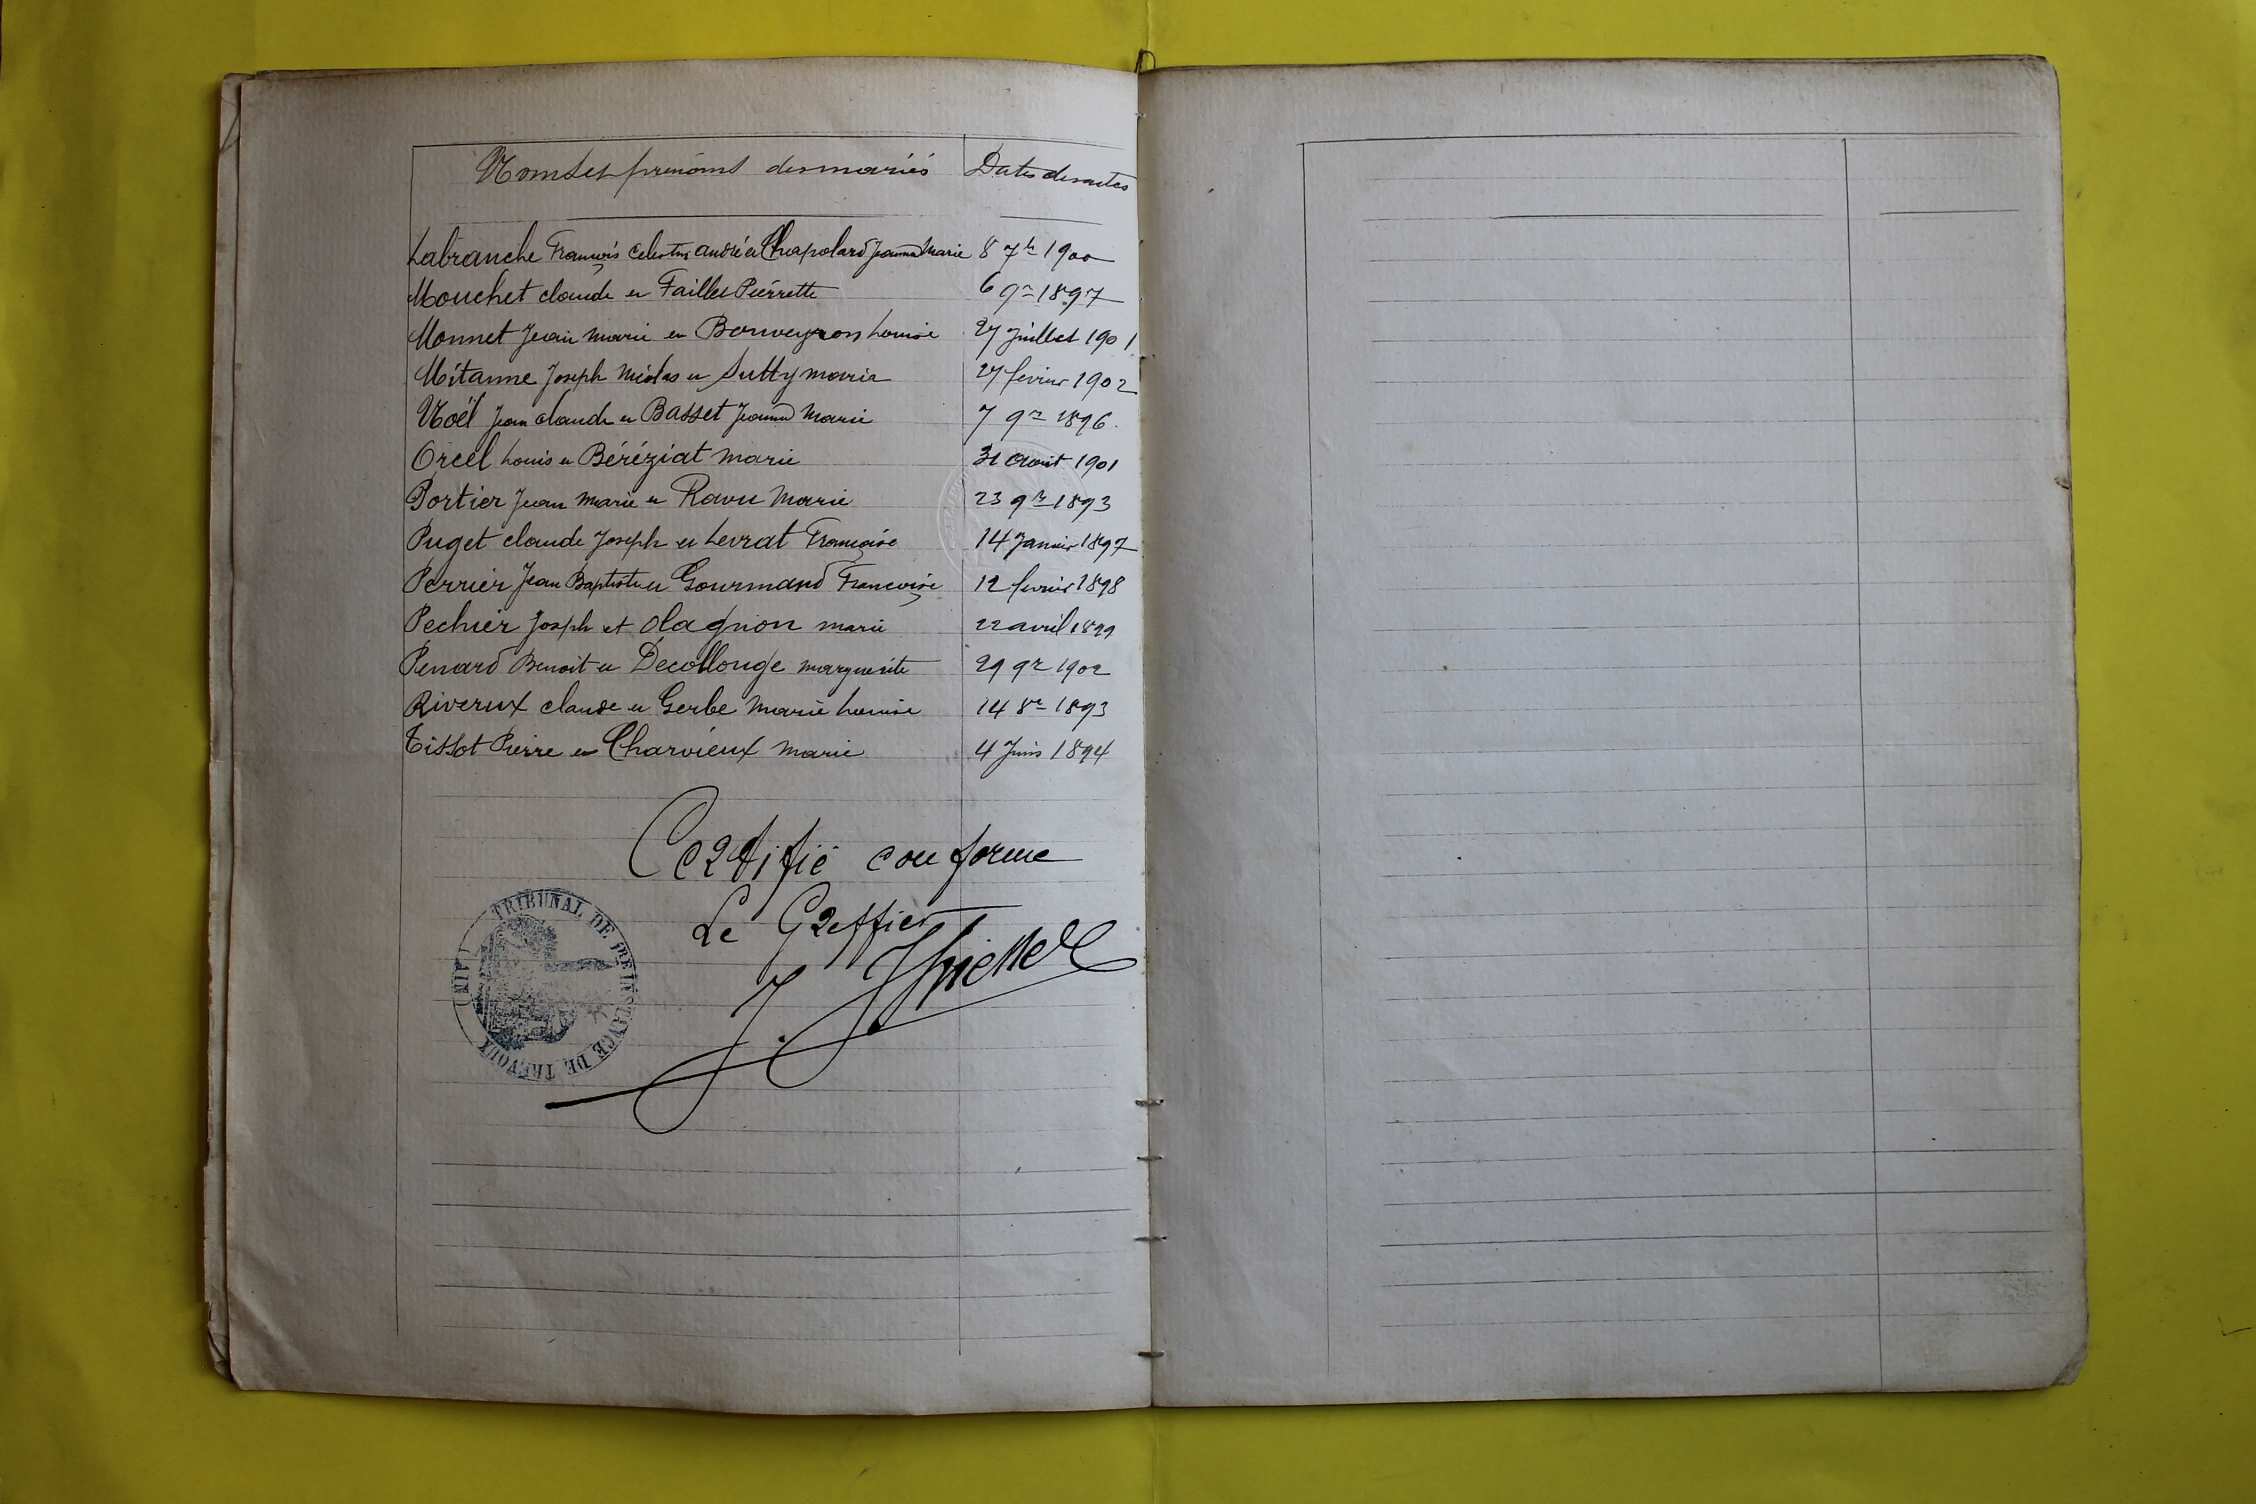 Noms et prénoms des mariés Dates des actes
Labranche François Celestin andré et Chapolard Jeanne Marie 8 7bre 1900
Mouchet claude et Faillet Pierrette 6 9re 1897
Monnet Jean marie et Bonveyron Louise 27 Juillet 1901
Mitanne Joseph Nicolas et Sutty maria 27 fevrier 1902
Noël Jean claude et Basset Jeanne Marie 7 9re 1896.
Orcel Louis et Béréziat Marie 31 Aout 1901
Portier Jean Marie et Ravu Marie 23 9re 1893
Puget claude Joseph et Levrat Françoise 14 Janvier 1897
Perrier Jean Baptiste et Gourmand Françoise 12 fevrier 1898
Pechier Joseph et Olagnon marie 22 avril 1899
Penard Benoit et Decollonge marguerite 29 9re 1902
Riverux claude et Gerbe Marie Louise 14 8re 1893
Tissot Pierre et Charvieux Marie 4 Juin 1894
Certifié conforme
Le Greffier
J.
TRIBUNAL DE PRE INSTANCE DE TRÉVOUX